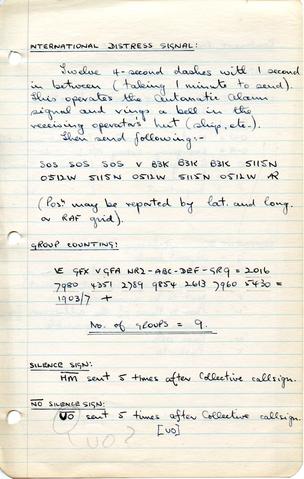 INTERNATIONAL DISTRESS SIGNAL:
Twelve 4-second dashes with 1 second
in between (taking 1 minute to send).
This operates the automatic alarm
signal and rings a bell in the
receiving operators' hut (ship, etc.).
Then send following:-
SOS SOS SOS V B3K B3K B3K 5115N
0512W 5115N 0512W 5115N 0512W AR
(Pos" may be reported by lat. and long.
or RAF grid).
GROUP COUNTING:
VE GFX V GFA NR2-ABC-DEF-GR9 = 2016
7980 4351 2789 9854 2613 7960 5430 =
1903/7 +
No. of GROUPS = 9.
SILENCE SIGN:
HM sent 5 times after Collective callsign.
NO SILENCE SIGN:
UO sent 5 times after Collective callsign.
[UO]
UO?